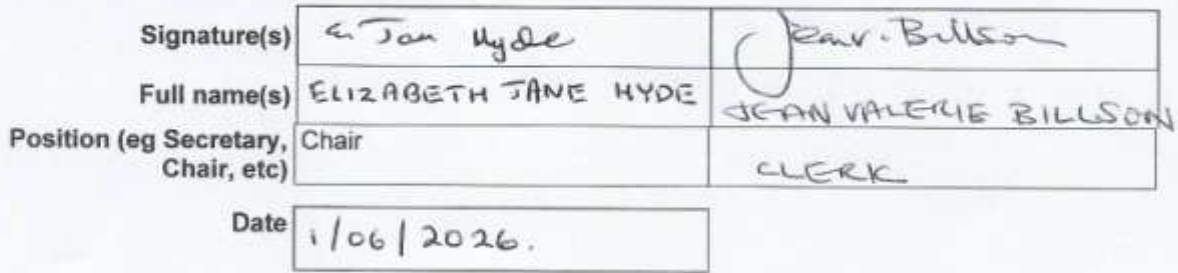 Signature(s) E. Jan Hyde Jean V. Billson
Full name(s) ELIZABETH JANE HYDE JEAN VALERIE BILLSON
Position (eg Secretary, Chair
Chair, etc) CLERK
Date 1/06/2026.